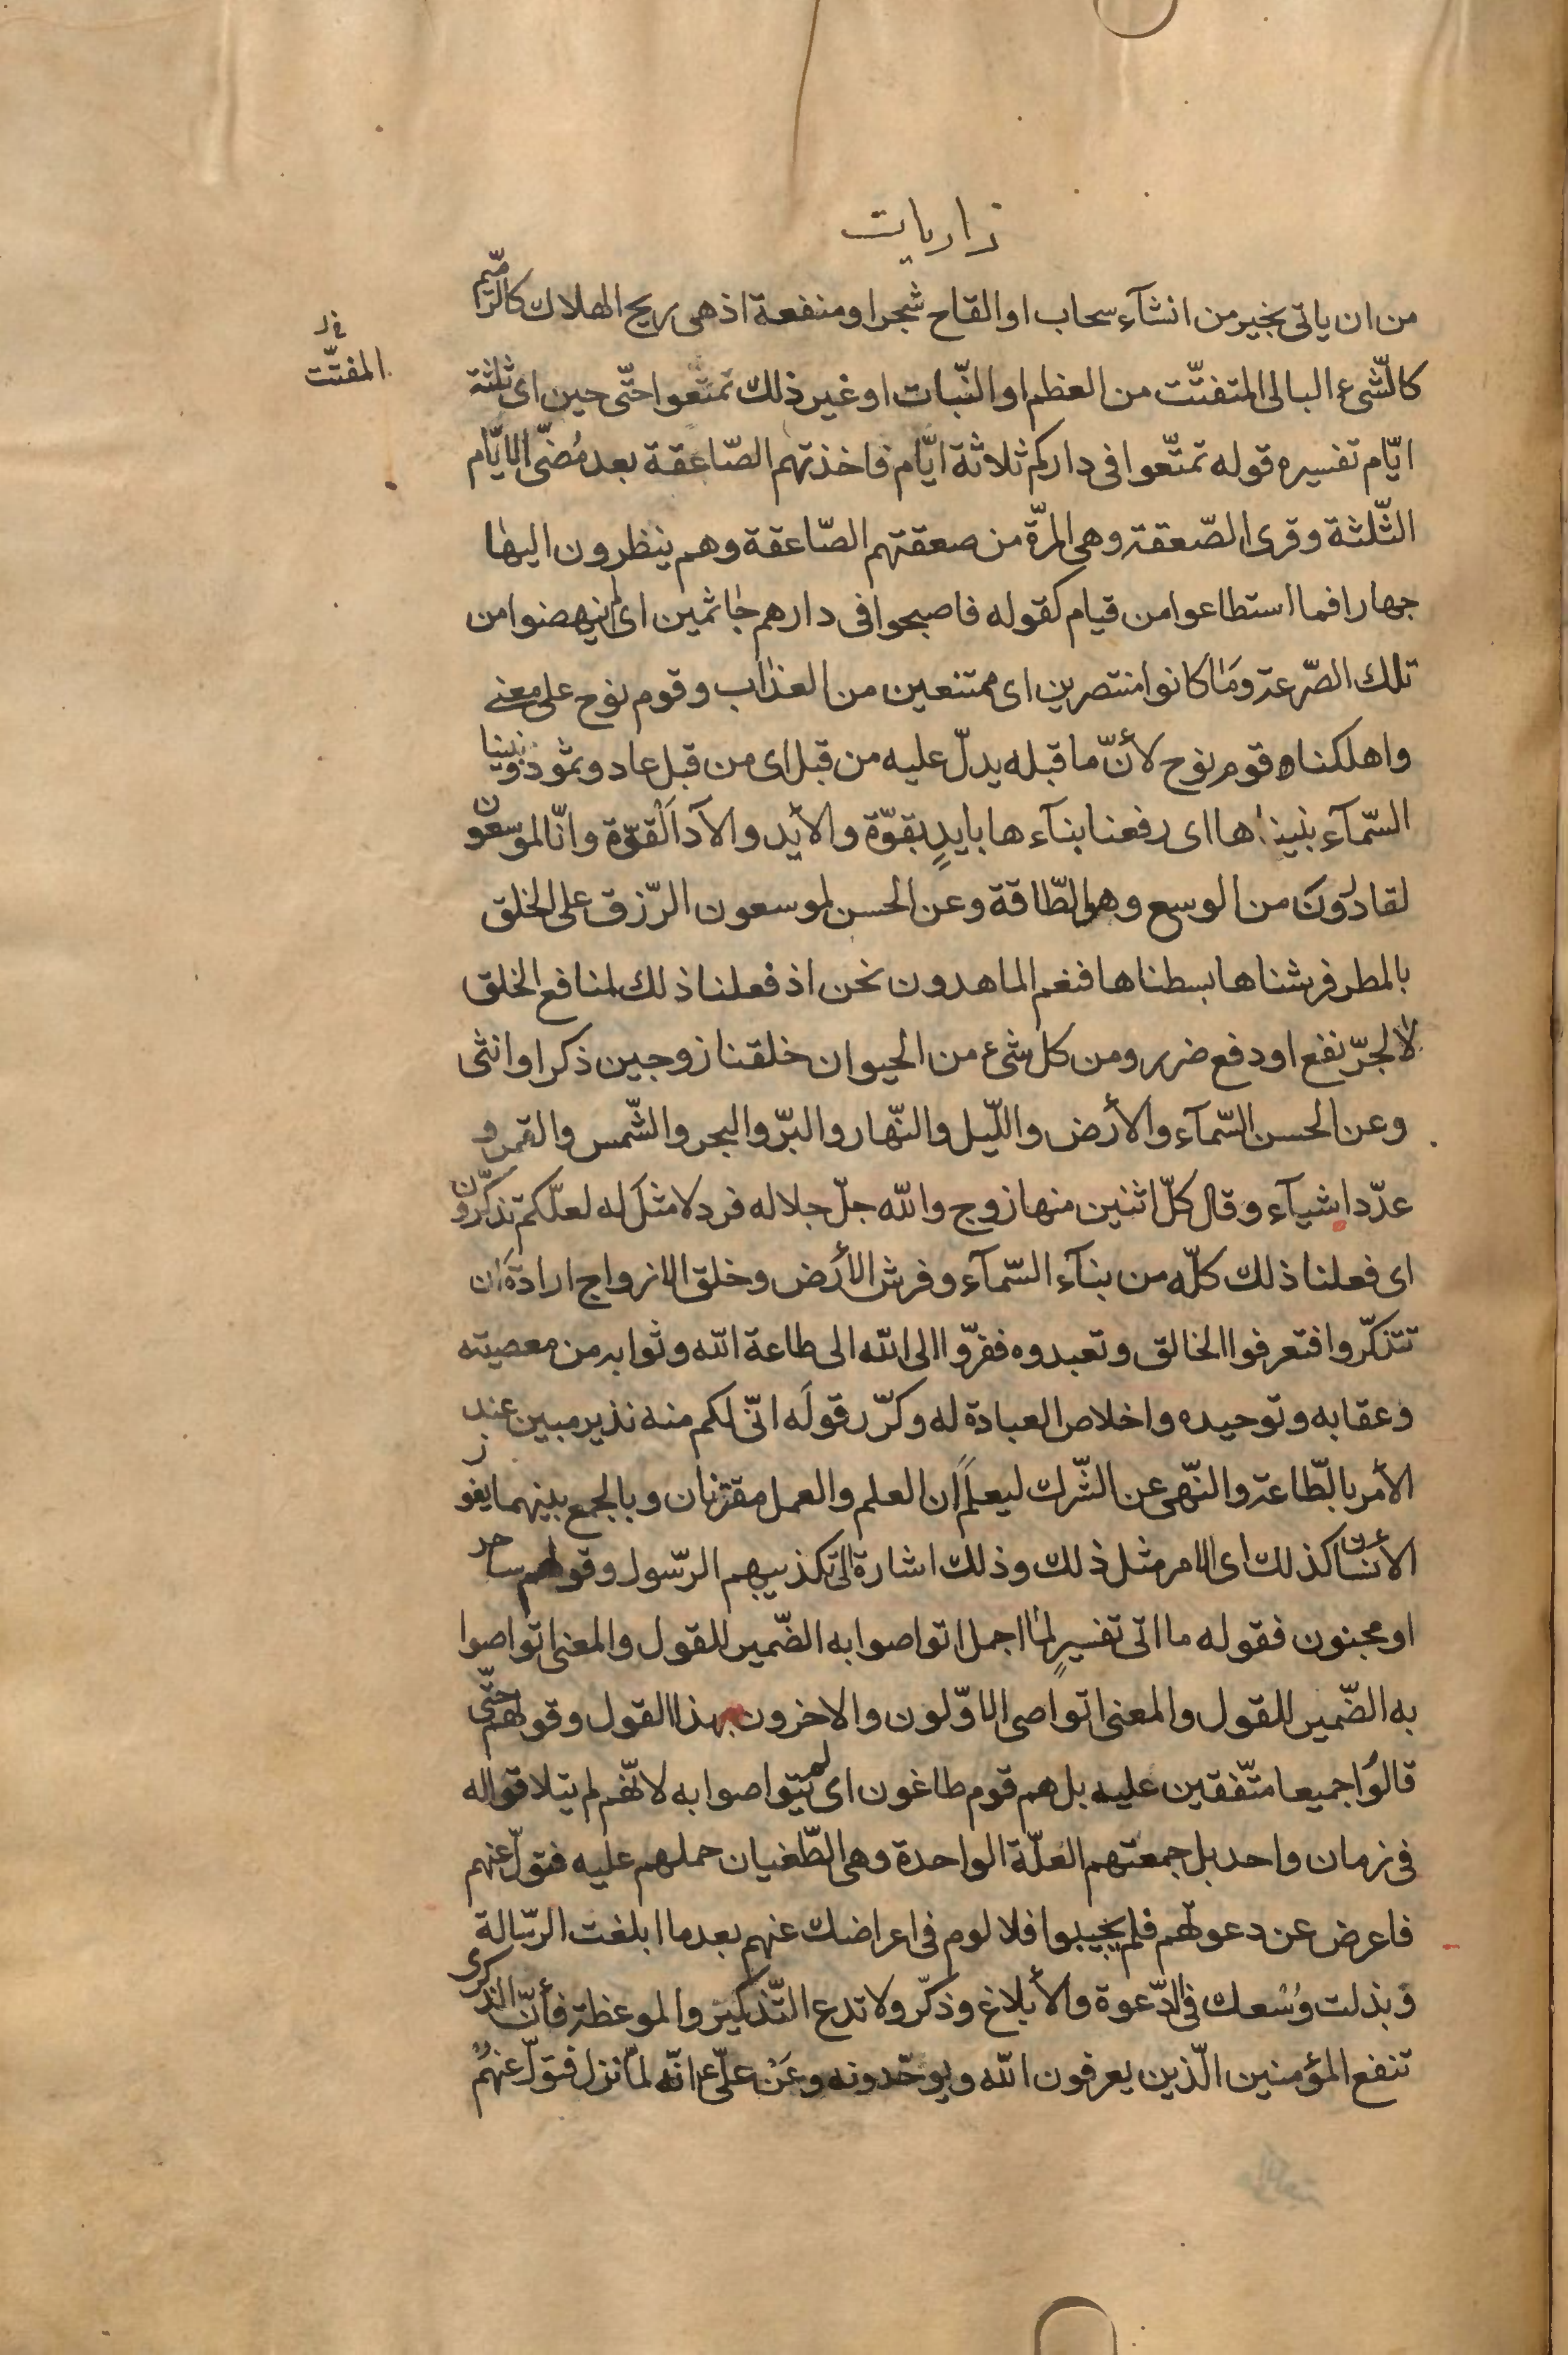 ذاريات
من ان ياتى بخير من انشآء سحاب او القاح شجر او منفعة اذ هى ريح الهلاك كالرّميم
كالشّىء البالى المتفتّت من العظم او النّبات او غير ذلك تمتّعوا حتّى حين اى ثلثة
المفتّت
ايّام تفسيره قوله تمتّعوا فى داركم ثلاثة ايّام فاخذتهم الصّاعقة بعد مُضىّ الايّام
الثّلثة وقرى الصّعقة وهى المرّة من صعقتهم الصّاعقة وهم ينظرون اليها
جهارا فما استطاعوا من قيام كقوله فاصبحوا فى دارهم جاثمين اى لم ينهضوا من
تلك الصّرعة وما كانوا منتصرين اى ممتنعين من العذاب وقوم نوح على معنى
واهلكناه قوم نوح لأنّ ما قبله يدلّ عليه من قبل اى من قبل عاد وثمود وبنينا
السّمآء بنيناها اى رفعنا بنآءها بايدٍ بقوّة والأيد والآد القوّة وانّا لموسعون
لقادرون من الوسع وهو الطّاقة وعن الحسن لموسعون الرّزق على الخلق
بالمطر فرشناها بسطناها فنعم الماهدون نحن اذ فعلنا ذلك لمنافع الخلق
لا لجرّ نفع او دفع ضرر ومن كل شىء من الحيوان خلقنا زوجين ذكرا وانثى
وعن الحسن السّمآء والأرض واللّيل والنّهار والبرّ والبحر والشّمس والقمر و
عدّد اشيآء وقال كلّ اثنين منها زوج والله جلّ جلاله فرد لا مثل له لعلّكم تذكّرون
اى فعلنا ذلك كلّه من بنآء السّمآء وفرش الأرض وخلق الازواج ارادة ان
تتذكّروا فتعرفوا الخالق وتعبدوه ففرّوا الى الله الى طاعة الله وثوابه من معصيته
وعقابه وتوحيده واخلاص العبادة له وكرّر قوله انّى لكم منه نذير مبين عند
الأمر بالطّاعة والنّهى عن الشّرك ليعلم ان العلم والعمل مقترنان وبالجمع بينهما يفوز
الأنسان كذلك اى الامر مثل ذلك وذلك اشارة الى تكذيبهم الرّسول وقولهم ساحر
او مجنون فقوله ما اتى تفسيرٍ لما اجمل اتواصوا به الضّمير للقول والمعنى اتواصوا
به الضّمير للقول والمعنى اتواصى الاوّلون والاخرون بهذا القول وقولهم حتّى
قالوا جميعا متّفقين عليه بل هم قوم طاغون اى لم يتواصوا به لانّهم لم يتلاقوا له
فى زمان واحد بل جمعتهم العلّة الواحدة وهى الطّغيان حملهم عليه فتولّ عنهم
فاعرض عن دعوتهم فلم يجيبوا فلا لوم فى اعراضك عنهم بعد ما ابلغت الرّسالة
وبذلت وُسْعك فى الدّعوة والأبلاغ وذكّر ولا تدع التّذكير والموعظة فأنّ الذّكرى
تنفع المؤمنين الّذين يعرفون الله ويوحّدونه وعَنْ علىّ ع انّه لمّا نزل فتولّ عنهم